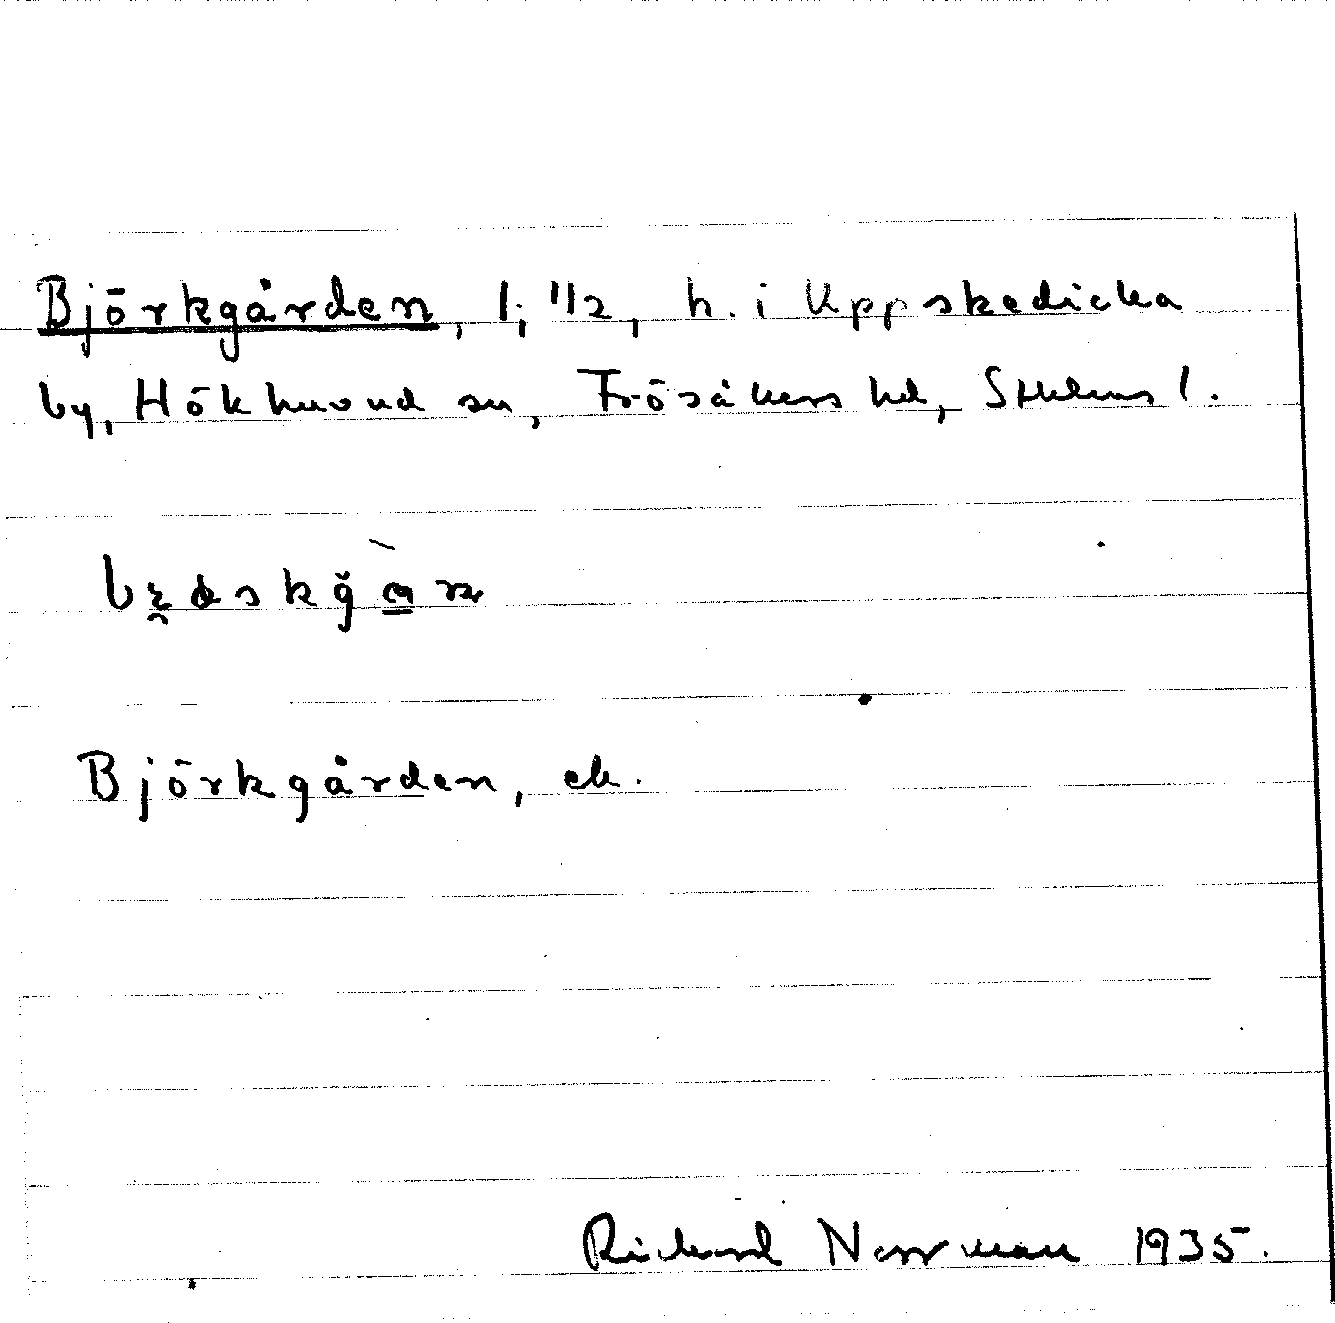 Björkgården, 1; 1/2, h. i Uppskedicka
by, Hökhuvud sn, Frösåkers hd, Sthlms l.
Björkgården, ek.
Richard Norrman 1935.